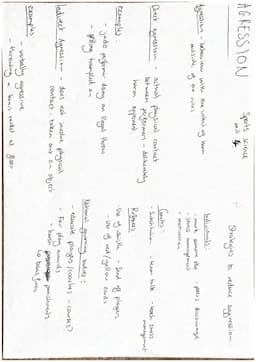 AGRESSION
Sports science
unit 4
Agression - behaviour with the intent of harm
outside of the rules
Direct agression - actual physical contact
between performers - deliberately
harm opponent
examples
- judo performer doing an illegal throw
- getting trampled on
Indirect agression - does not involve physical
contact - taken out on an object
examples
- verbally agressive
- throwing a tennis racket at floor
Strategies to reduce agression
Individuals:
- mark someone else - peers discourage
- stress management
- motivation
Coaches:
- Substitution - team talk - teach stress
management
Referees
- Use of whistle - Send off players
- Use of red/yellow cards
National governing bodies:
- educate players/coaches - courses?
- Fair play awards
- harsh punishments